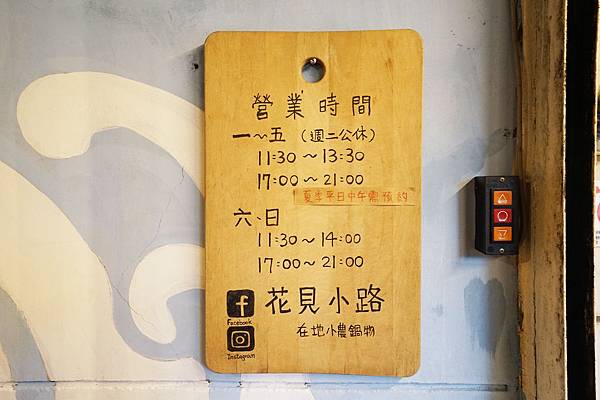 營業時間
一～五（週二公休）
11:30～13:30
17:00～21:00
夏季平日中午需預約
六、日
11:30～14:00
17:00～21:00
花見小路
在地小農鍋物
Facebook
Instagram